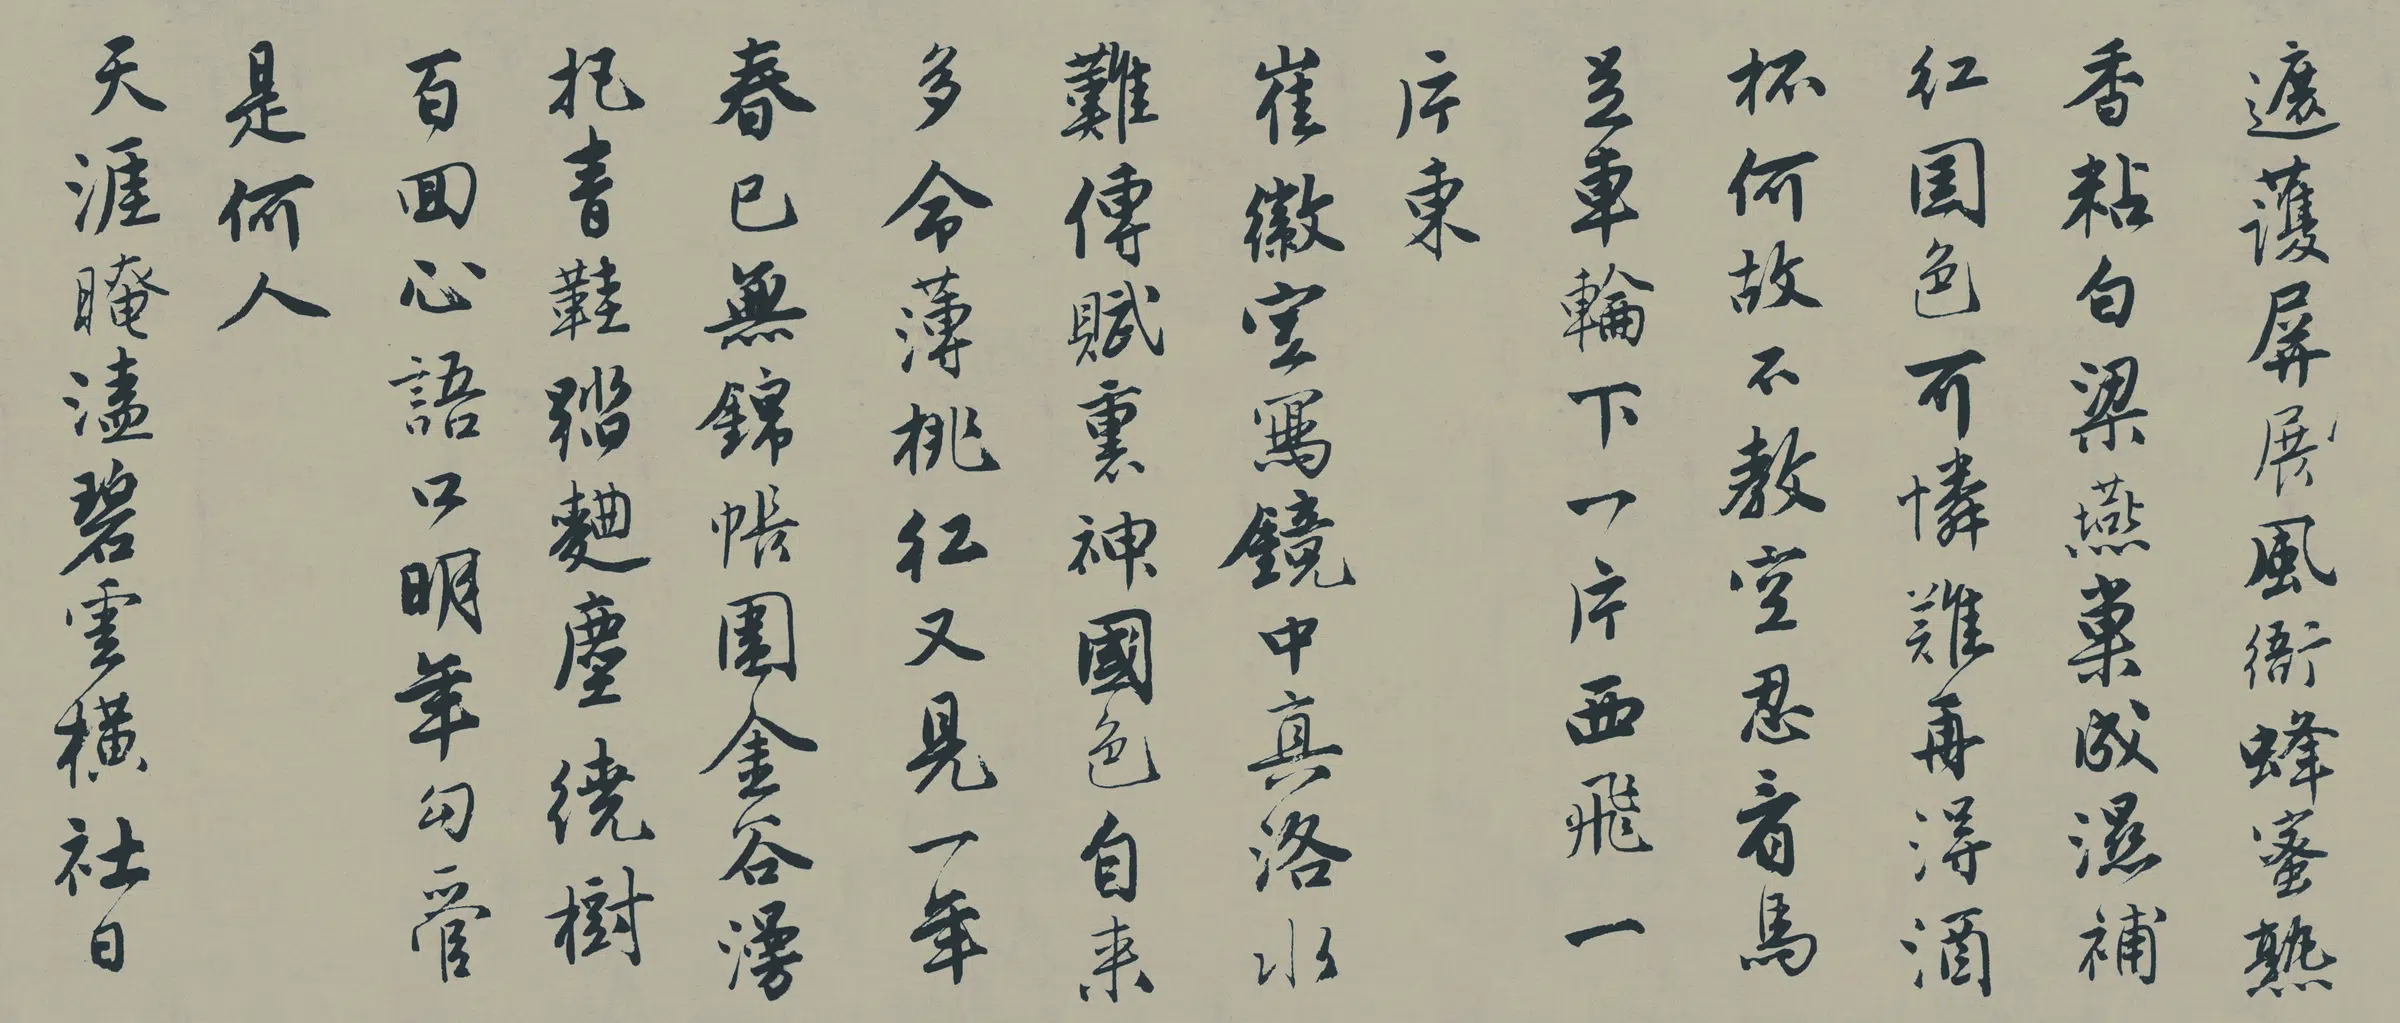 遮護屏展風衙蜂蜜熟
香粘白梁燕巢成濕補
紅囯色可憐難再得酒
杯何故不教空忍看馬
足車輪下一片西飛一
片東
崔徽空寫鏡中真洛水
難傳賦裏神國色自来
多命薄桃紅又見一年
春已無錦帳圍金谷漫
把青鞋踏麯塵繞樹
百回心語口明年勾管
是何人
天涯晻溘碧雲橫社日